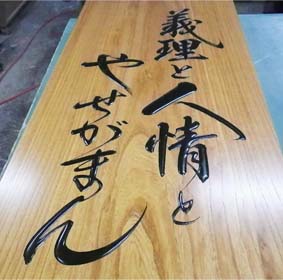 義理と人情と
やせがまん